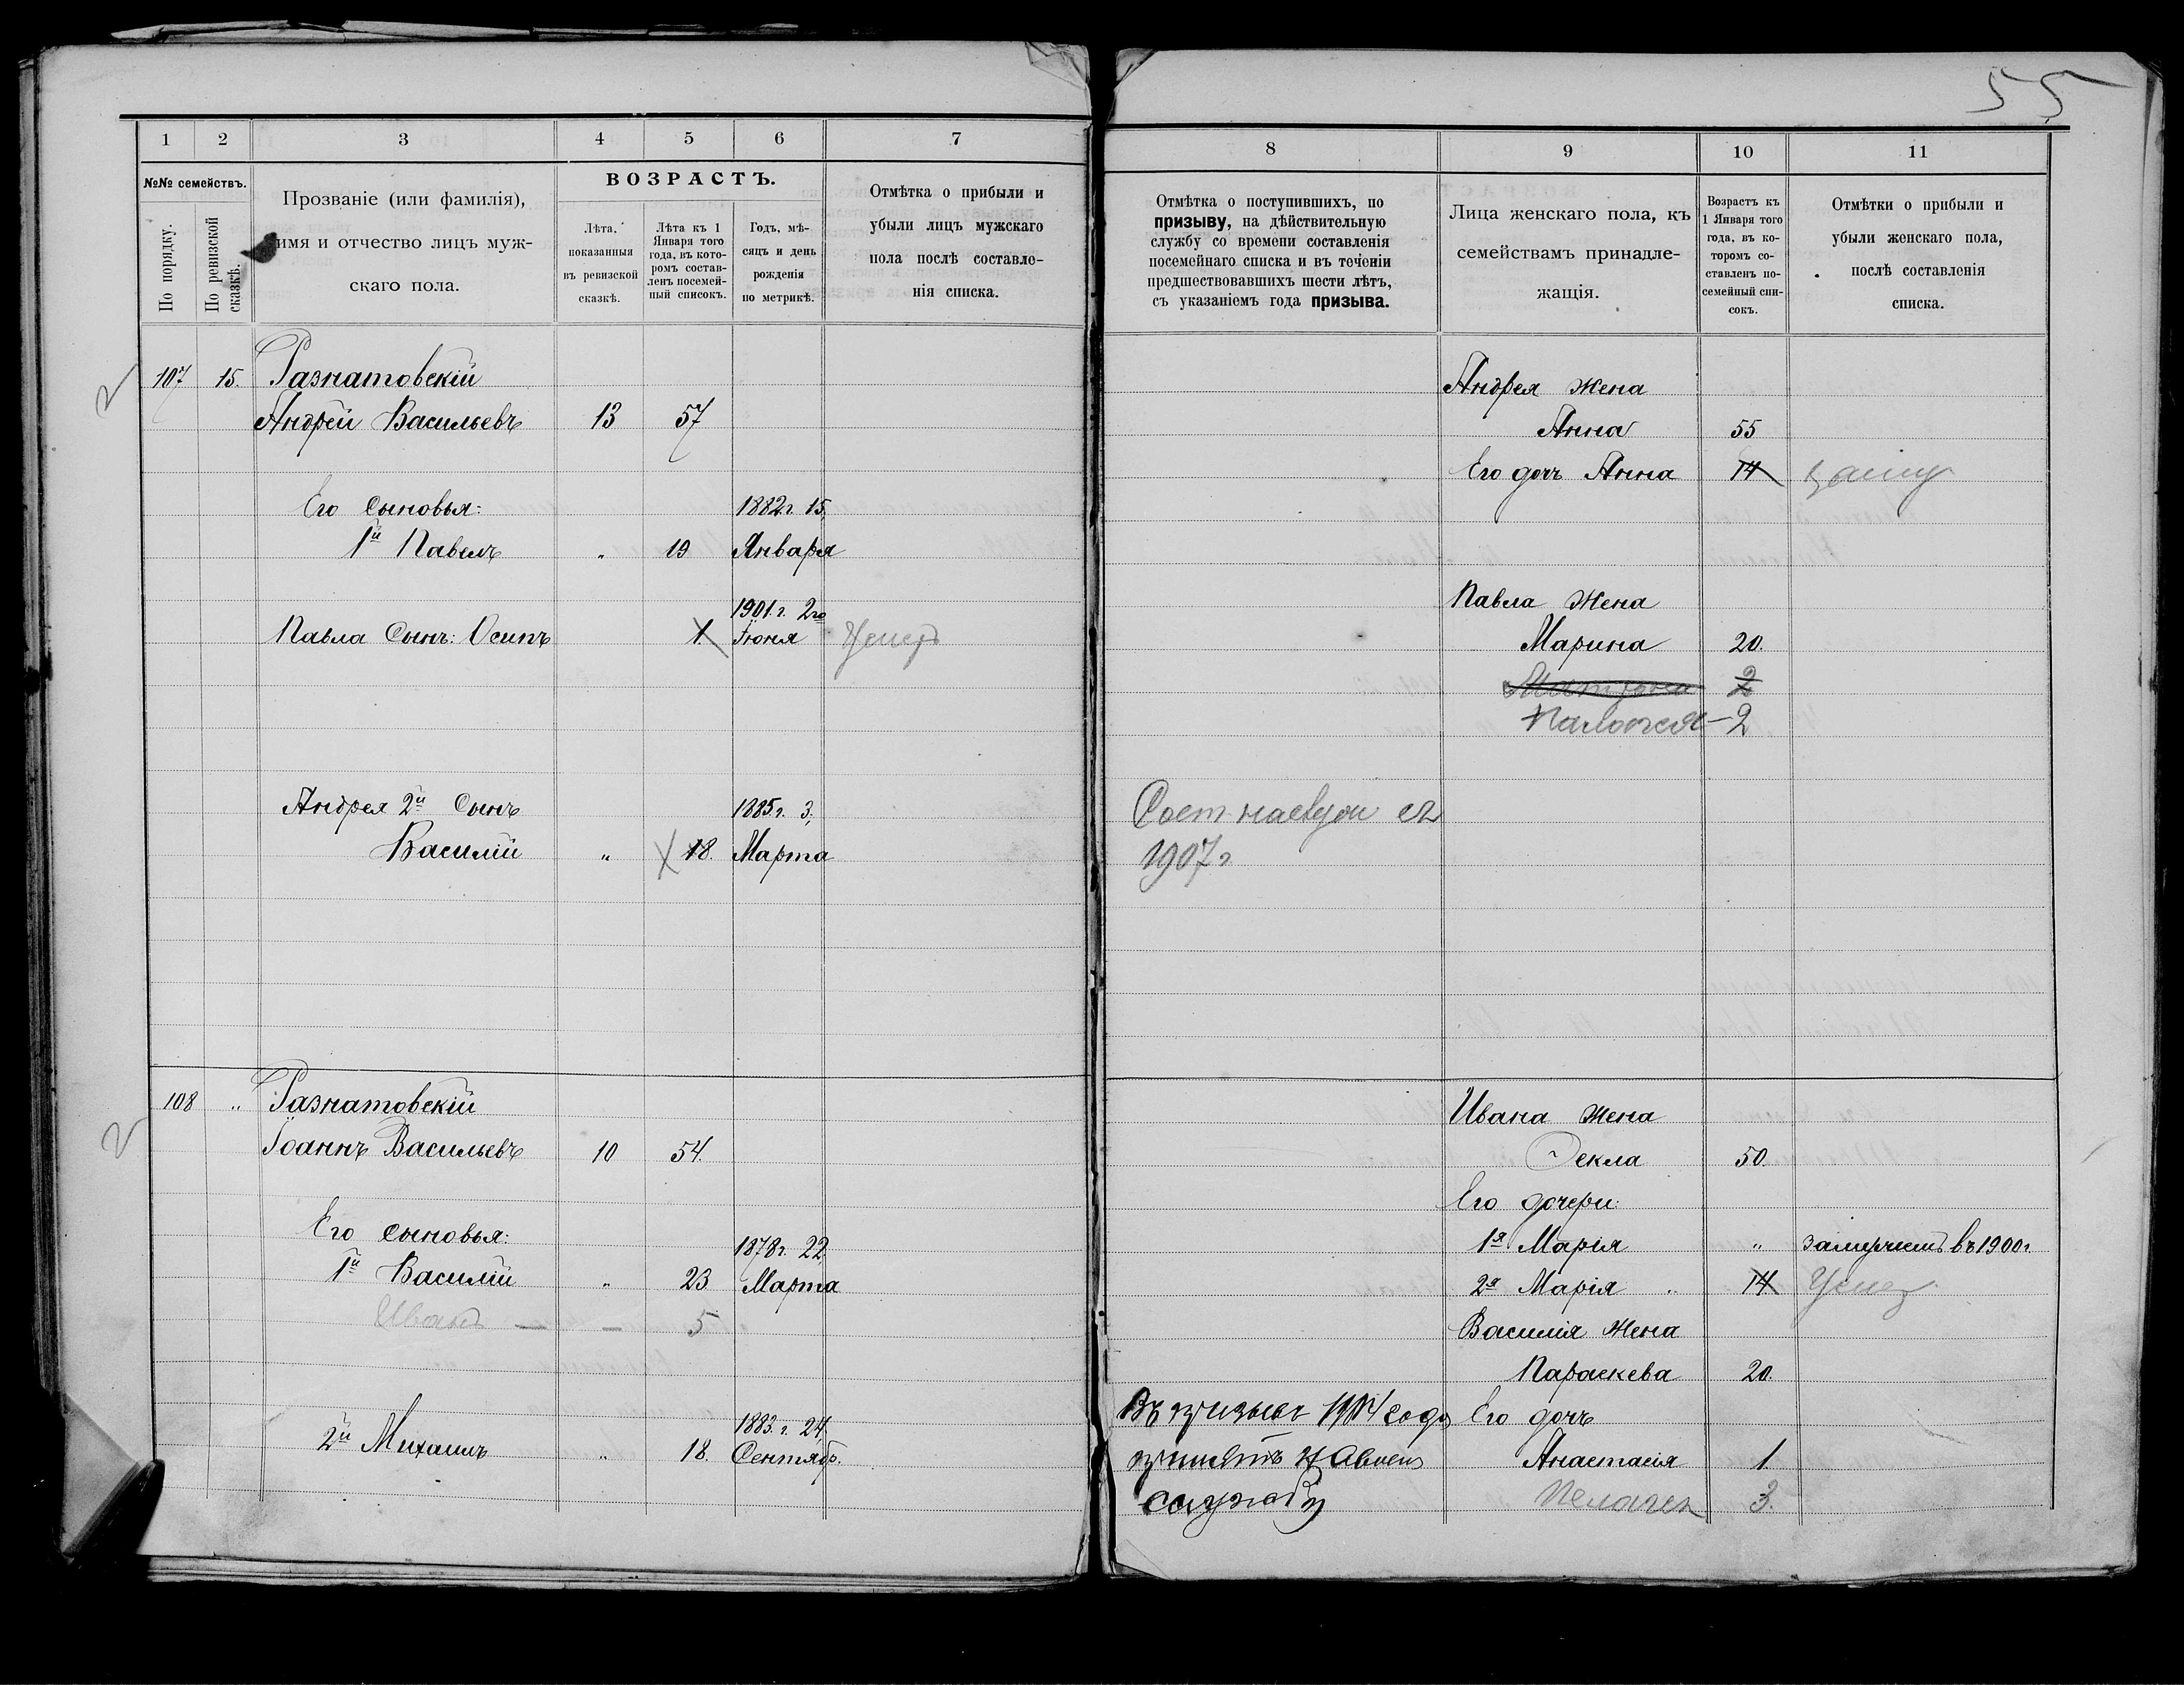 55
1 2 3 4 5 6 7
№№ семействъ.
По порядку.
По ревизской сказкѣ.
Прозваніе (или фамилія),
имя и отчество лицъ муж-
скаго пола.
ВОЗРАСТЪ.
Лѣта,
показанныя
въ ревизской
сказкѣ.
Лѣта къ 1
Января того
года, въ кото-
ромъ состав-
ленъ посемей-
ный списокъ.
Годъ, мѣ-
сяцъ и день
рожденія
по метрикѣ.
Отмѣтка о прибыли и
убыли лицъ мужскаго
пола послѣ составле-
нія списка.
107 15. Разнатовскій
Андрей Васильевъ 13 57
Его сыновья: 1882 г. 15,
1й Павелъ „ 19 Января
1901 г. 2го
Павла Сынъ: Осипъ 1. Іюня
Андрея 2й Сынъ 1885 г. 3,
Василій „ 18. Марта
108 „ Разнатовскій
Іоаннъ Васильевъ 10 54.
Его сыновья: 1878 г. 22,
1й Василій „ 23 Марта
Иванъ — — 5
1883. г. 24,
2й Михаилъ „ 18. Сентябр.
8 9 10 11
Отмѣтка о поступившихъ, по
призыву, на дѣйствительную
службу со времени составленія
посемейнаго списка и въ теченіи
предшествовавшихъ шести лѣтъ,
съ указаніемъ года призыва.
Лица женскаго пола, къ
семействамъ принадле-
жащія.
Возрастъ къ
1 Января того
года, въ ко-
торомъ со-
ставленъ по-
семейный спи-
сокъ.
Отмѣтки о прибыли и
убыли женскаго пола,
послѣ составленія
списка.
Андрея Жена
Анна 55
Его дочь Анна 14
Павла Жена
Марина 20.
2
2
1907 г
Ивана Жена
Фекла 50.
Его дочери:
1я Марія „ въ 1900 г.
2я Марія „ 14
Василія Жена
Параскева 20.
Въ призывъ 1904 года Его дочь
принятъ Анастасія 1.
службу Пелагея 3.